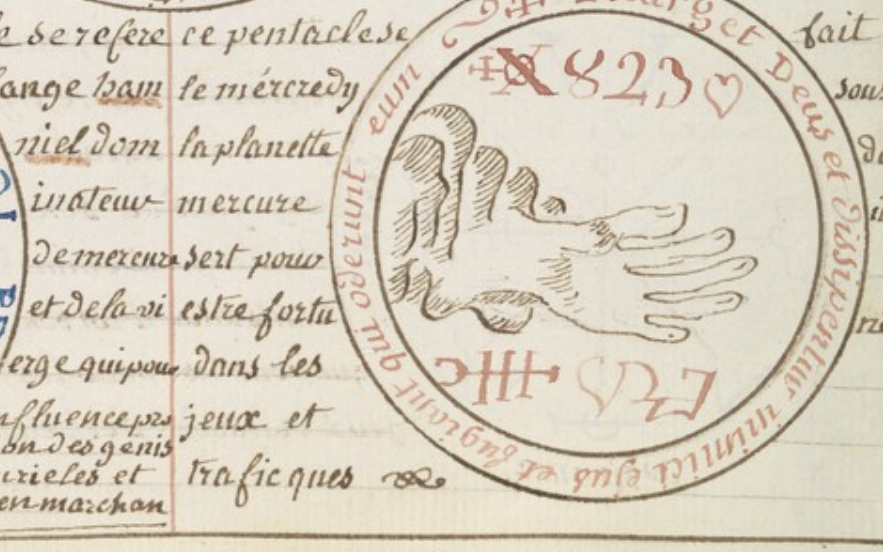 e se refere
ange ham
niel dom
inateur
de mercure
et de la vi
erge qui pour
nfluence pro
on des genis
urieles et
en marchan
ce pentacle se
le mércredy
la planette
mercure
sert pour
estre fortu
dans les
jeux et
traficques
et Deus et dissipentur inimici ejus et fugiant qui oderunt eum
823
fait
sous